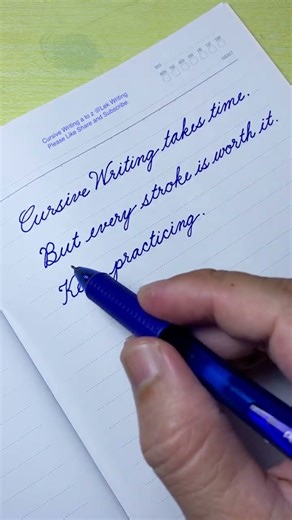 Cursive Writing a to z @Lek Writing
Please Like Share and Subscribe.
Cursive Writing takes time.
But every stroke is worth it.
practicing.